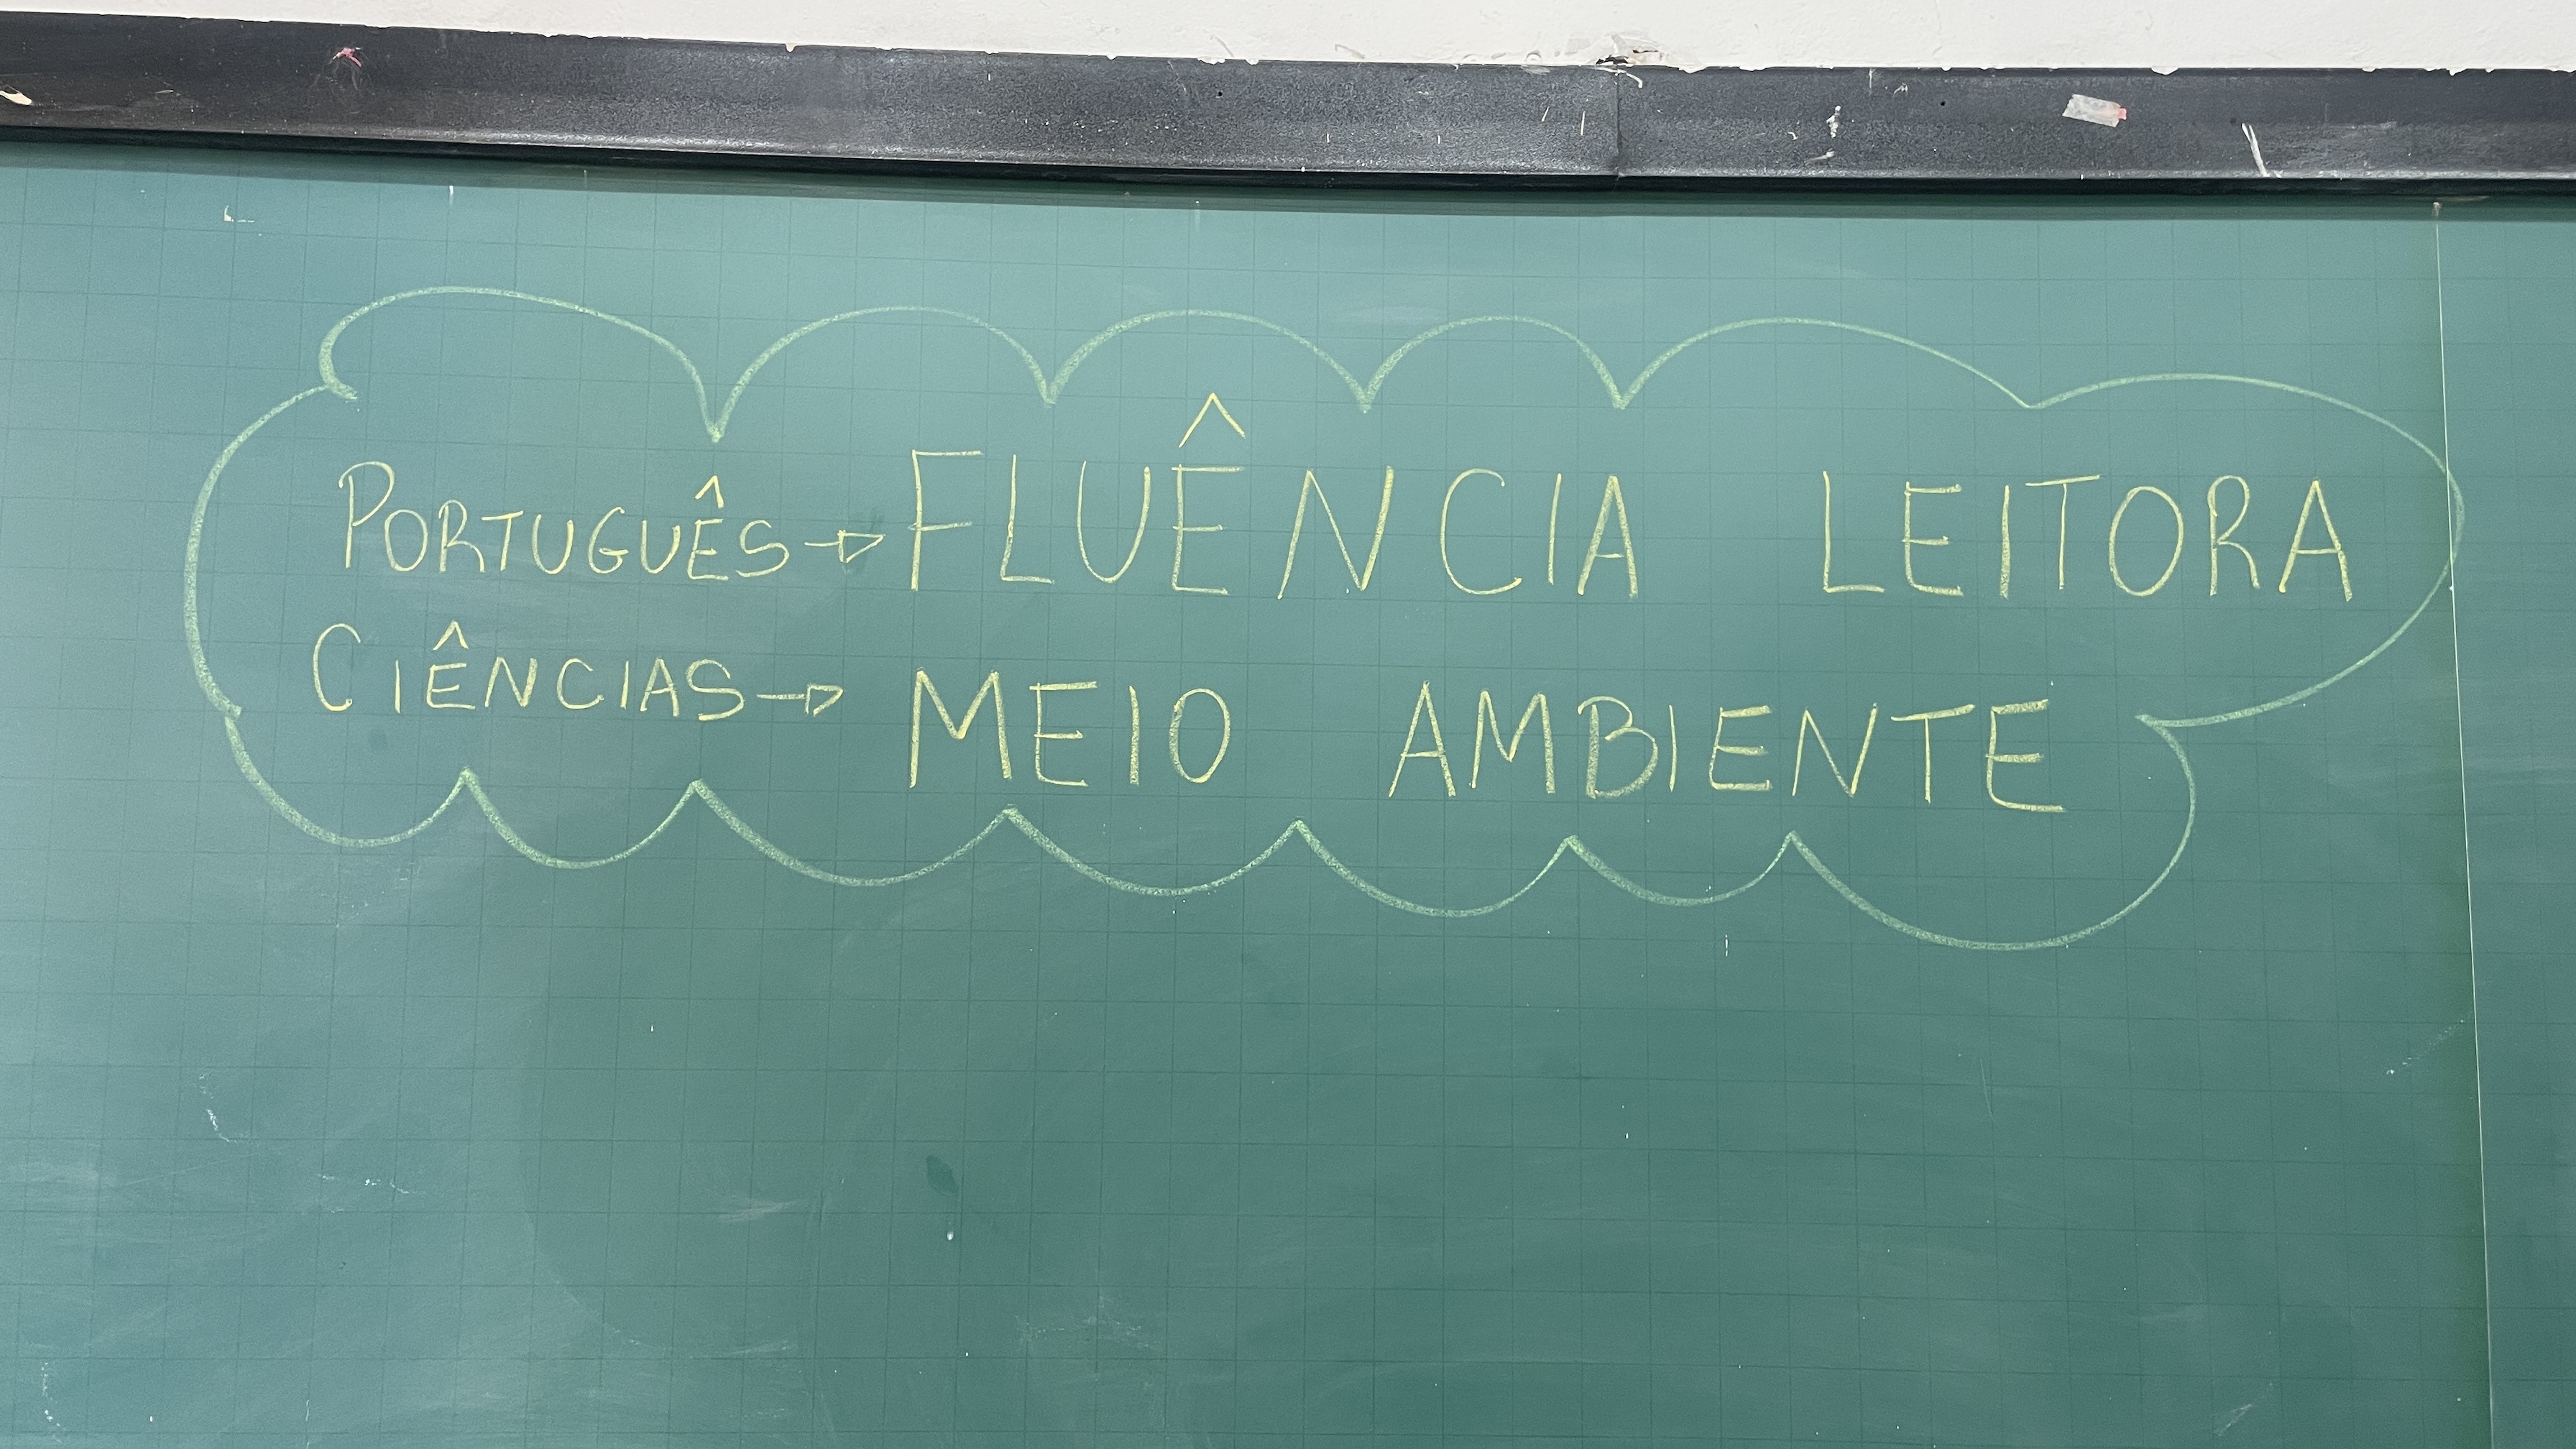 PORTUGUÊS → FLUÊNCIA LEITORA
CIÊNCIAS → MEIO AMBIENTE